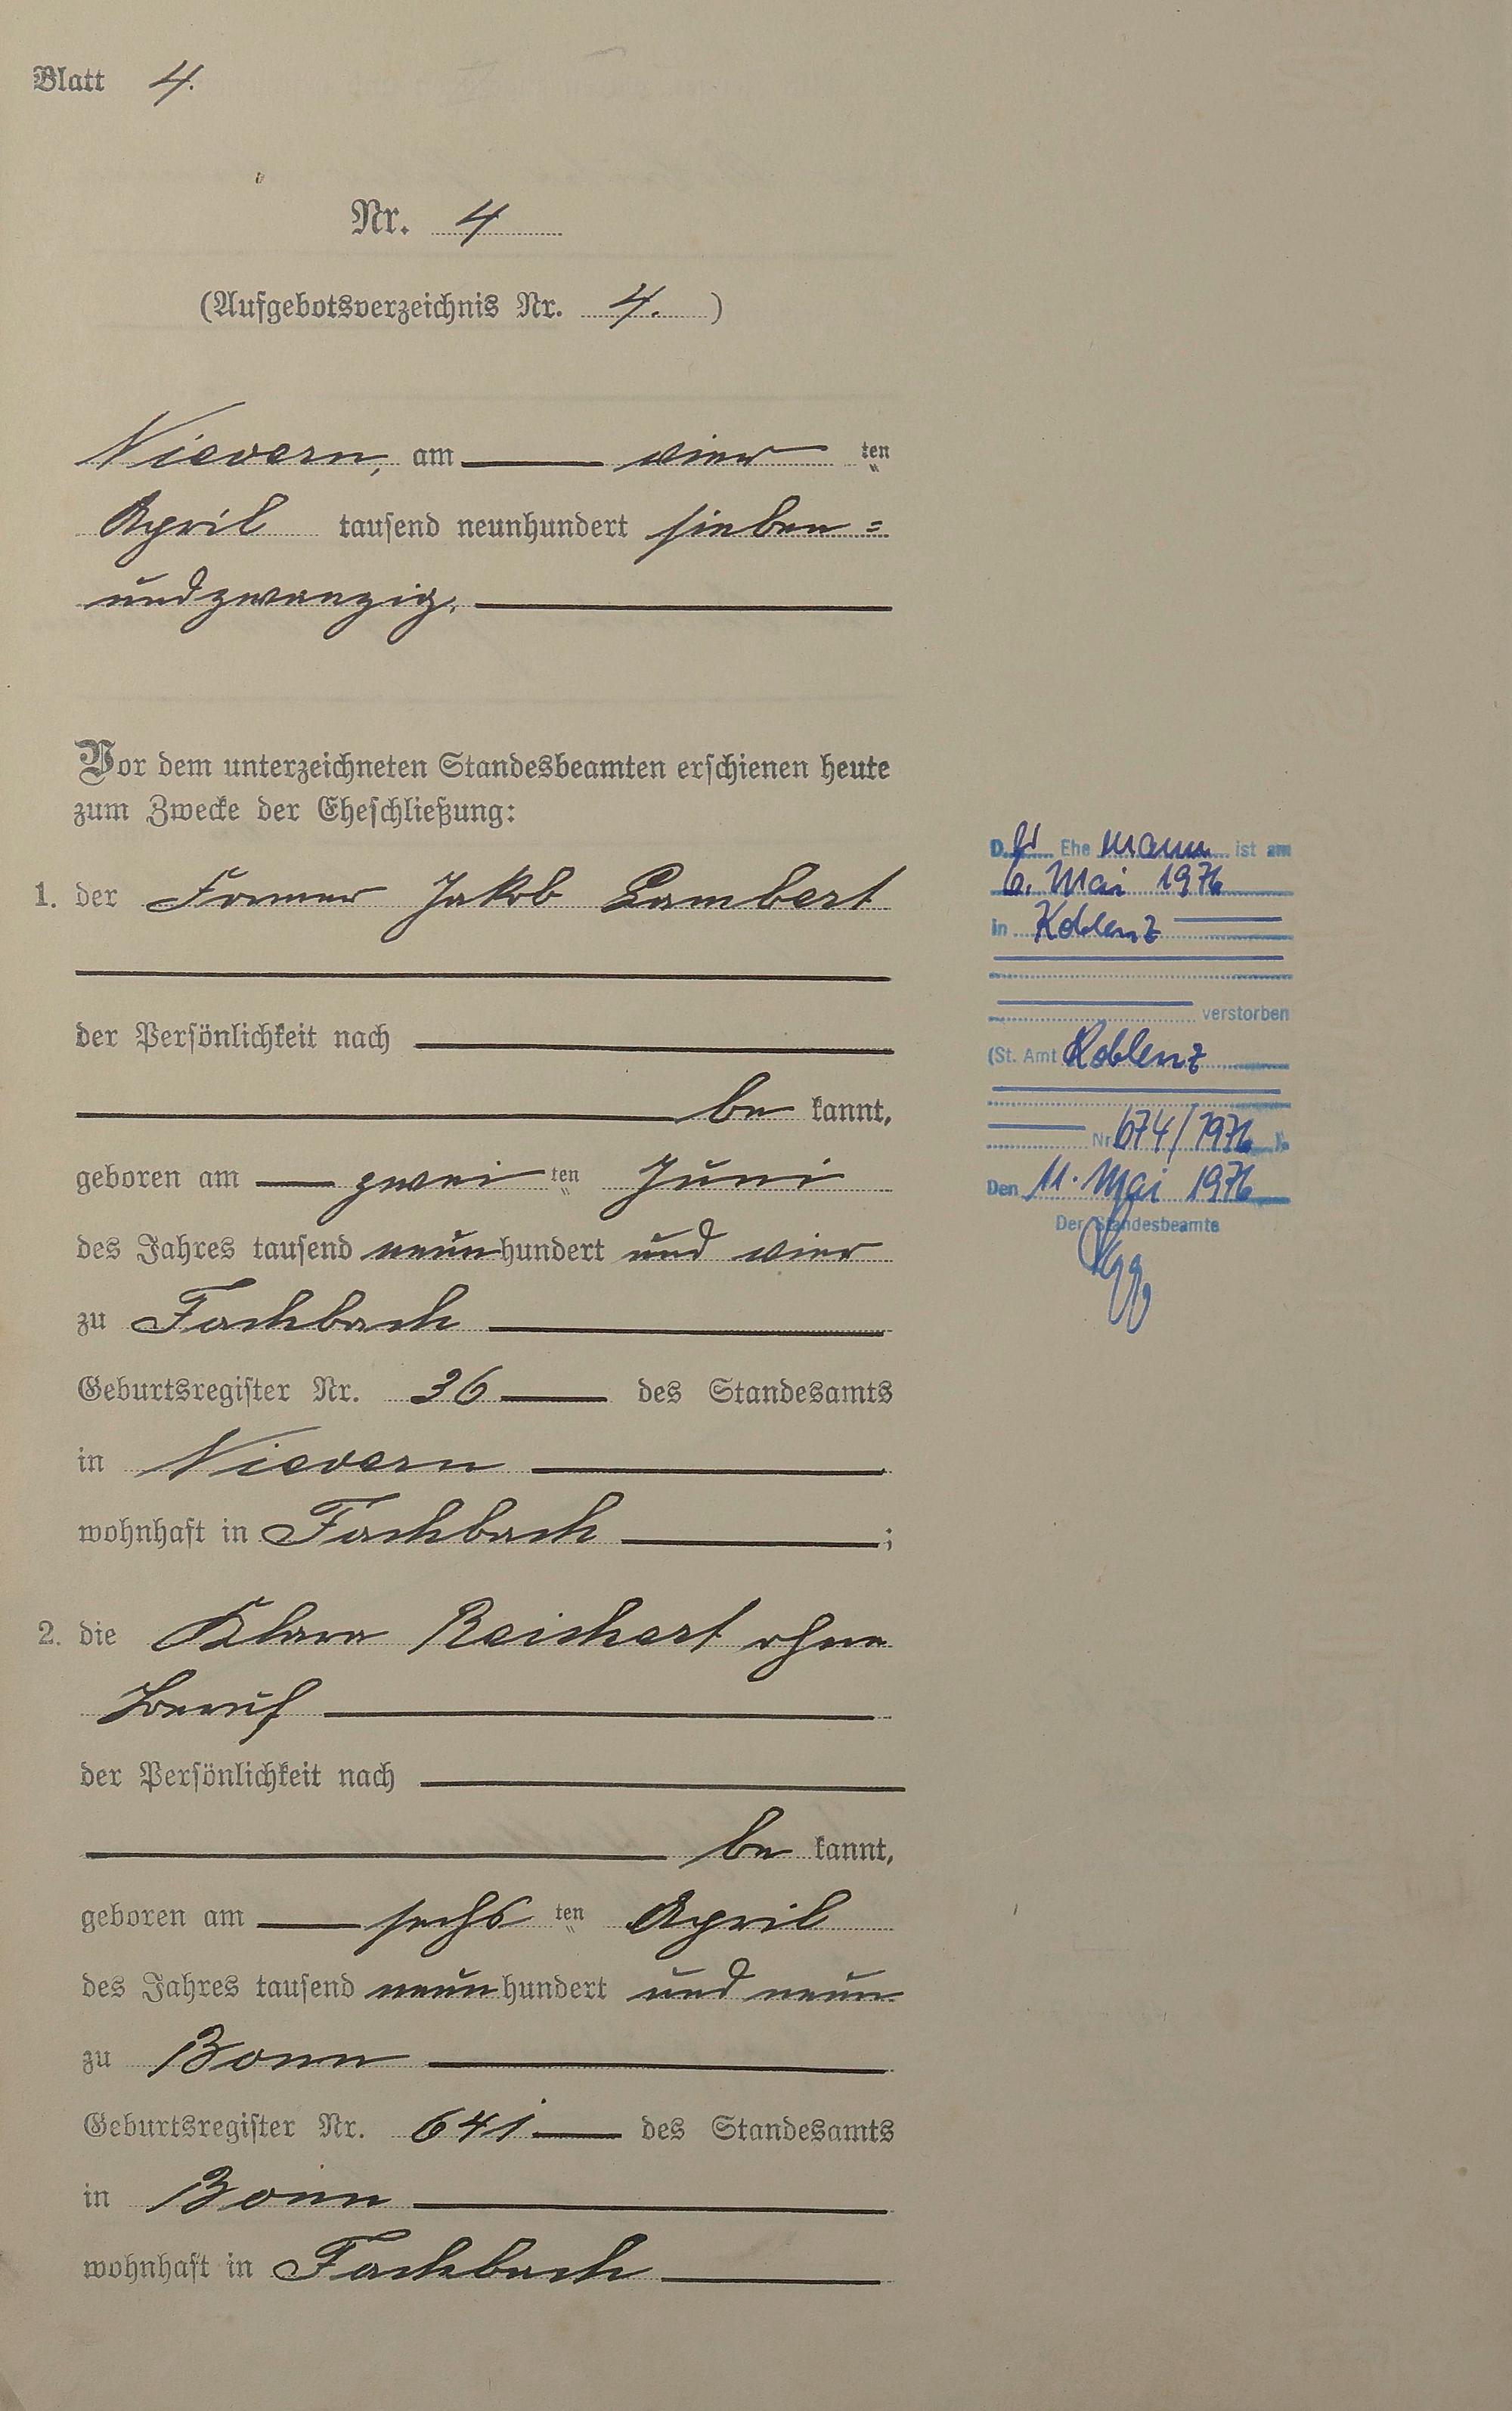 Blatt 4.
Nr. 4
(Aufgebotsverzeichnis Nr. 4.)
Nievern, am vier ten
April tausend neunhundert sieben=
undzwanzig.
Vor dem unterzeichneten Standesbeamten erschienen heute
zum Zwecke der Eheschließung:
1. der Former Jakob Lambert
der Persönlichkeit nach
be kannt,
geboren am zwei ten Juni
des Jahres tausend neun hundert und vier
zu Fachbach
Geburtsregister Nr. 36 des Standesamts
in Nievern
wohnhaft in Fachbach ;
2. die Klara Reichert ohne
Beruf
der Persönlichkeit nach
be kannt,
geboren am sechs ten April
des Jahres tausend neun hundert und neun
zu Bonn
Geburtsregister Nr. 641 des Standesamts
in Bonn
wohnhaft in Fachbach
D er Ehe mann ist am
6. Mai 1976
in Koblenz
verstorben
(St. Amt Koblenz
Nr. 674/1976 ).
Den 11. Mai 1976
Der Standesbeamte